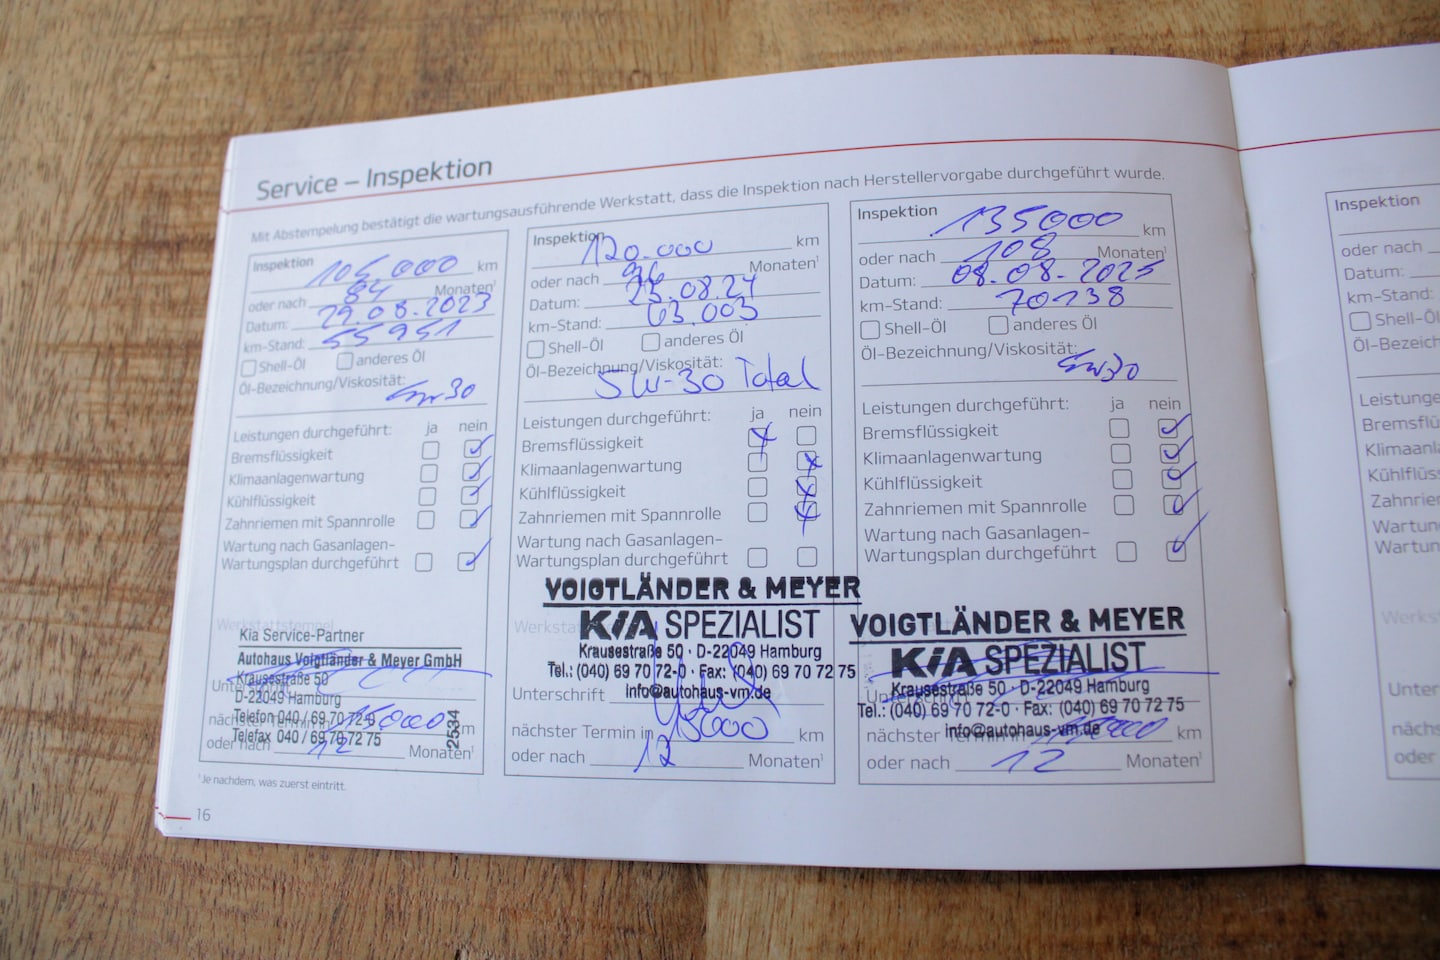 Service – Inspektion
Mit Abstempelung bestätigt die wartungsausführende Werkstatt, dass die Inspektion nach Herstellervorgabe durchgeführt wurde.
Inspektion 105.000 km
oder nach 84 Monaten¹
Datum: 29.08.2023
km-Stand: 55951
Shell-Öl anderes Öl
Öl-Bezeichnung/Viskosität:
5w30
Leistungen durchgeführt: ja nein
Bremsflüssigkeit
Klimaanlagenwartung
Kühlflüssigkeit
Zahnriemen mit Spannrolle
Wartung nach Gasanlagen-
Wartungsplan durchgeführt
Werkstattstempel
Kia Service-Partner
Autohaus Voigtländer & Meyer GmbH
Krausestraße 50
D-22049 Hamburg
Telefon 040 / 69 70 72-0
Telefax 040 / 69 70 72 75
2534
nächster Termin in 15000 km
oder nach 12 Monaten¹
¹Je nachdem, was zuerst eintritt.
16
Inspektion 120.000 km
oder nach 96 Monaten¹
Datum: 23.08.24
km-Stand: 63.003
Shell-Öl anderes Öl
Öl-Bezeichnung/Viskosität:
5W-30 Total
Leistungen durchgeführt: ja nein
Bremsflüssigkeit
Klimaanlagenwartung
Kühlflüssigkeit
Zahnriemen mit Spannrolle
Wartung nach Gasanlagen-
Wartungsplan durchgeführt
VOIGTLÄNDER & MEYER
KIA SPEZIALIST
Krausestraße 50 · D-22049 Hamburg
Tel.: (040) 69 70 72-0 · Fax: (040) 69 70 72 75
info@autohaus-vm.de
Unterschrift
nächster Termin in 15000 km
oder nach 12 Monaten¹
Inspektion 135000 km
oder nach 108 Monaten¹
Datum: 08.08.2025
km-Stand: 70138
Shell-Öl anderes Öl
Öl-Bezeichnung/Viskosität:
5w30
Leistungen durchgeführt: ja nein
Bremsflüssigkeit
Klimaanlagenwartung
Kühlflüssigkeit
Zahnriemen mit Spannrolle
Wartung nach Gasanlagen-
Wartungsplan durchgeführt
VOIGTLÄNDER & MEYER
KIA SPEZIALIST
Krausestraße 50 · D-22049 Hamburg
Tel.: (040) 69 70 72-0 · Fax: (040) 69 70 72 75
info@autohaus-vm.de
nächster Termin in km
oder nach 12 Monaten¹
Inspektion
oder nach
Datum:
km-Stand:
Shell-Öl
nächs
oder